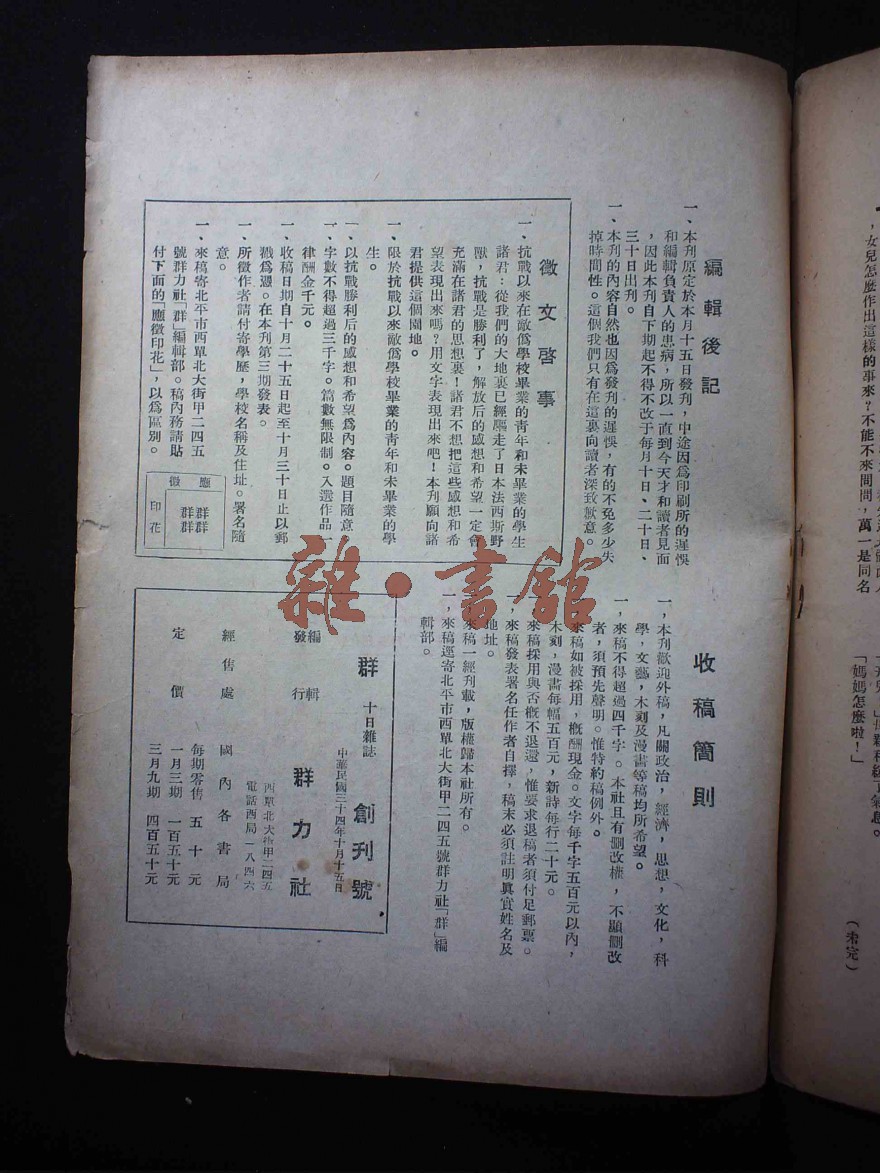 編輯後記
一、本刊原定於本月十五日發刋,中途因爲印刷所的遲悞
和編輯負責人的患病,所以一直到今天才和讀者見面
,因此本刋自下期起不得不改于每月十日、二十日、
三十日出刋。
一、本刋的內容自然也因爲發刋的遲悞,有的不免多少失
掉時間性。這個我們只有在這裏向讀者深致歉意。
徵文啓事
一、抗戰以來在敵僞學校畢業的青年和未畢業的學生
諸君:從我們的大地裏已經驅走了日本法西斯野
獸,抗戰是勝利了,解放后的感想和希望一定會
充滿在諸君的思想裏!諸君不想把這些感想和希
望表現出來嗎?用文字表現出來吧!本刋願向諸
君提供這個園地。
一、限於抗戰以來敵僞學校畢業的青年和未畢業的學
生。
一、以抗戰勝利后的感想和希望爲內容。題目隨意
一、字數不得超過三千字。篇數無限制。入選作品一
律酬金千元。
一、收稿日期自十月二十五日起至十月三十日止以郵
戳爲憑。在本刋第三期發表。
一、所徵作者請付寄學歷,學校名稱及住址。署名隨
意。
一、來稿寄北平市西單北大街甲二四五
號群力社「群」編輯部。稿內務請貼
付下面的「應徵印花」,以爲區別。
應徵
群群
群群
印花
收稿簡則
一,本刋歡迎外稿,凡關政治,經濟,思想,文化,科
學,文藝,木刻及漫畫等稿均所希望。
一,來稿不得超過四千字。本社且有刪改權,不願刪改
者,須預先聲明。惟特約稿例外。
來稿如被採用,槪酬現金。文字每千字五百元以內,
木刻,漫畫每幅五百元,新詩每行二十元。
來稿採用與否槪不退還,惟要求退稿者須付足郵票。
一,來稿發表署名任作者自擇,稿末必須註明眞實姓名及
地址。
來稿一經刋載,版權歸本社所有。
一,來稿逕寄北平市西單北大街甲二四五號群力社「群」編
輯部。
群 十日雜誌 創刊號
中華民國三十四年十月十五日
編輯
發行
群力社
西單北大街甲二四五
電話西局一八四六
經售處 國內各書局
定價
每期零售 五十元
一月三期 一百五十元
三月九期 四百五十元
,女兒怎麼作出這樣的事來?不能不來問問,萬一是同名
「媽媽怎麼啦!」
(未完)
雜·書館